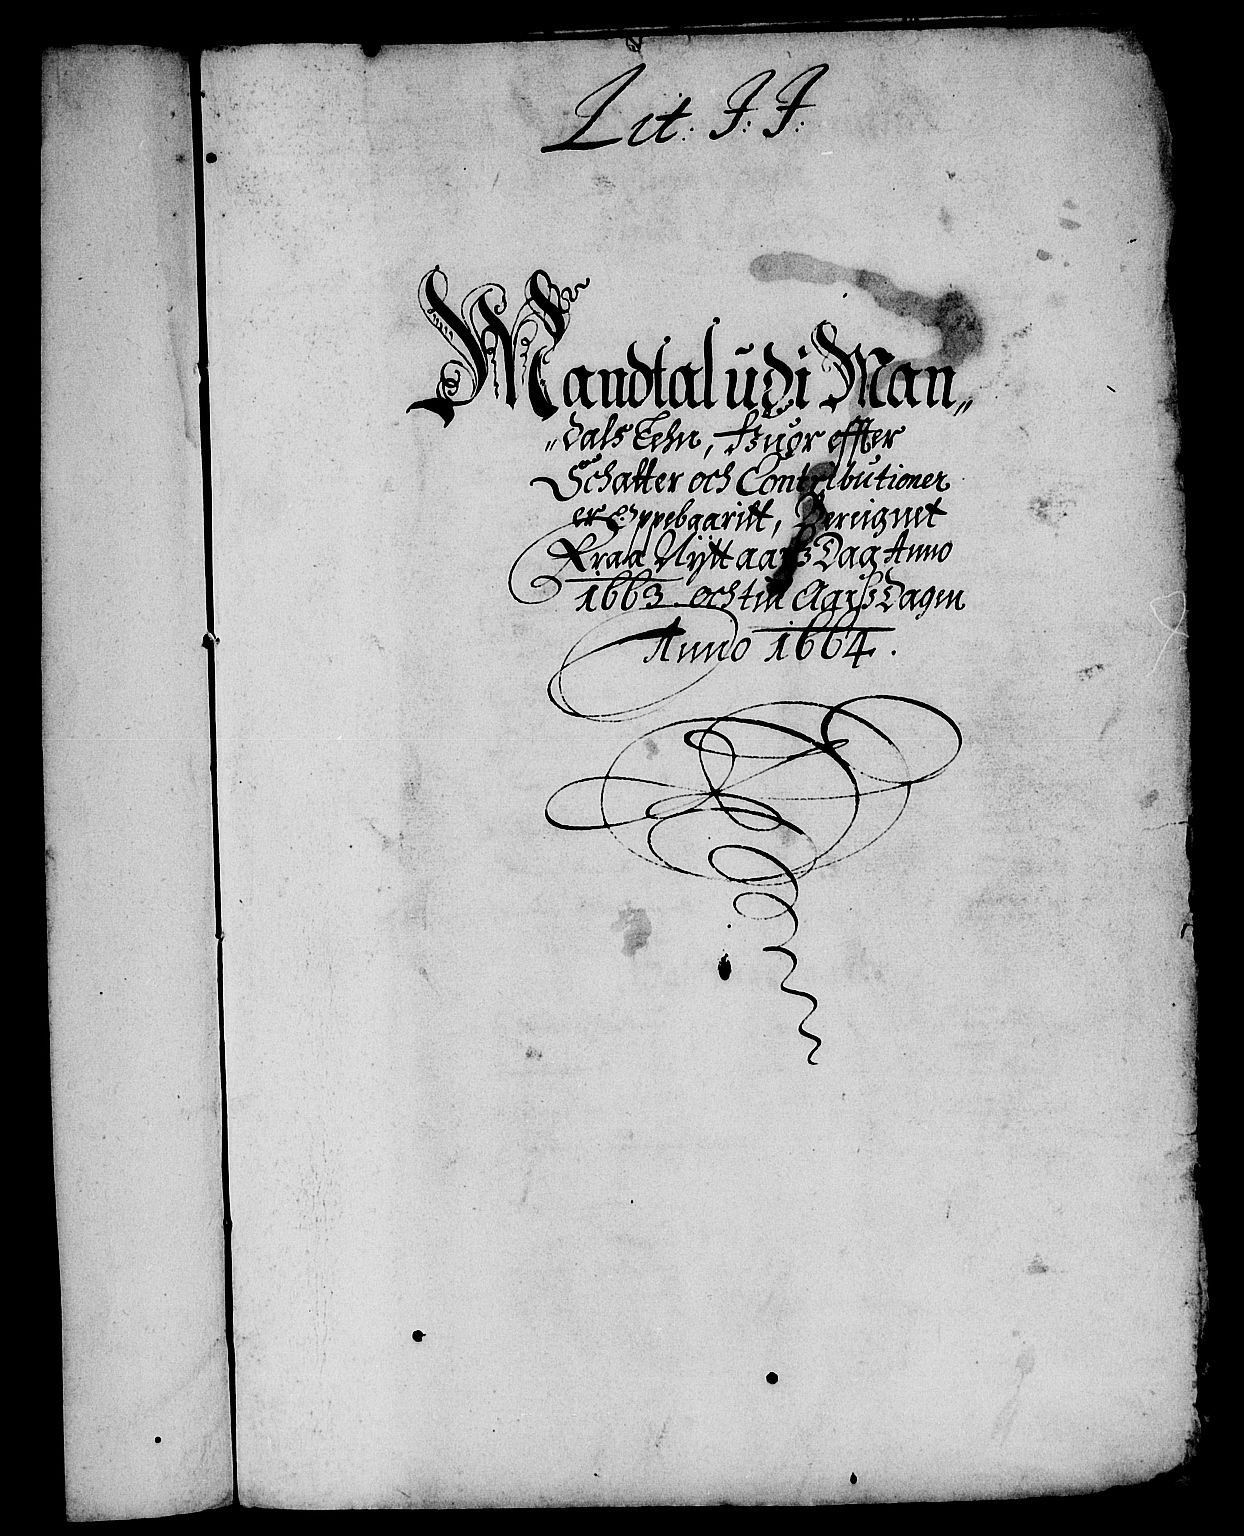 Lit: J: J:
Mandtal udi Man„
„dals Lehn, Huor effter
Schatter och Contributioner
er Oppebaaritt, Bereignet
Fraa Nytt aarß Dag Anno
1663 och till Aarß Dagen
Anno 1664.